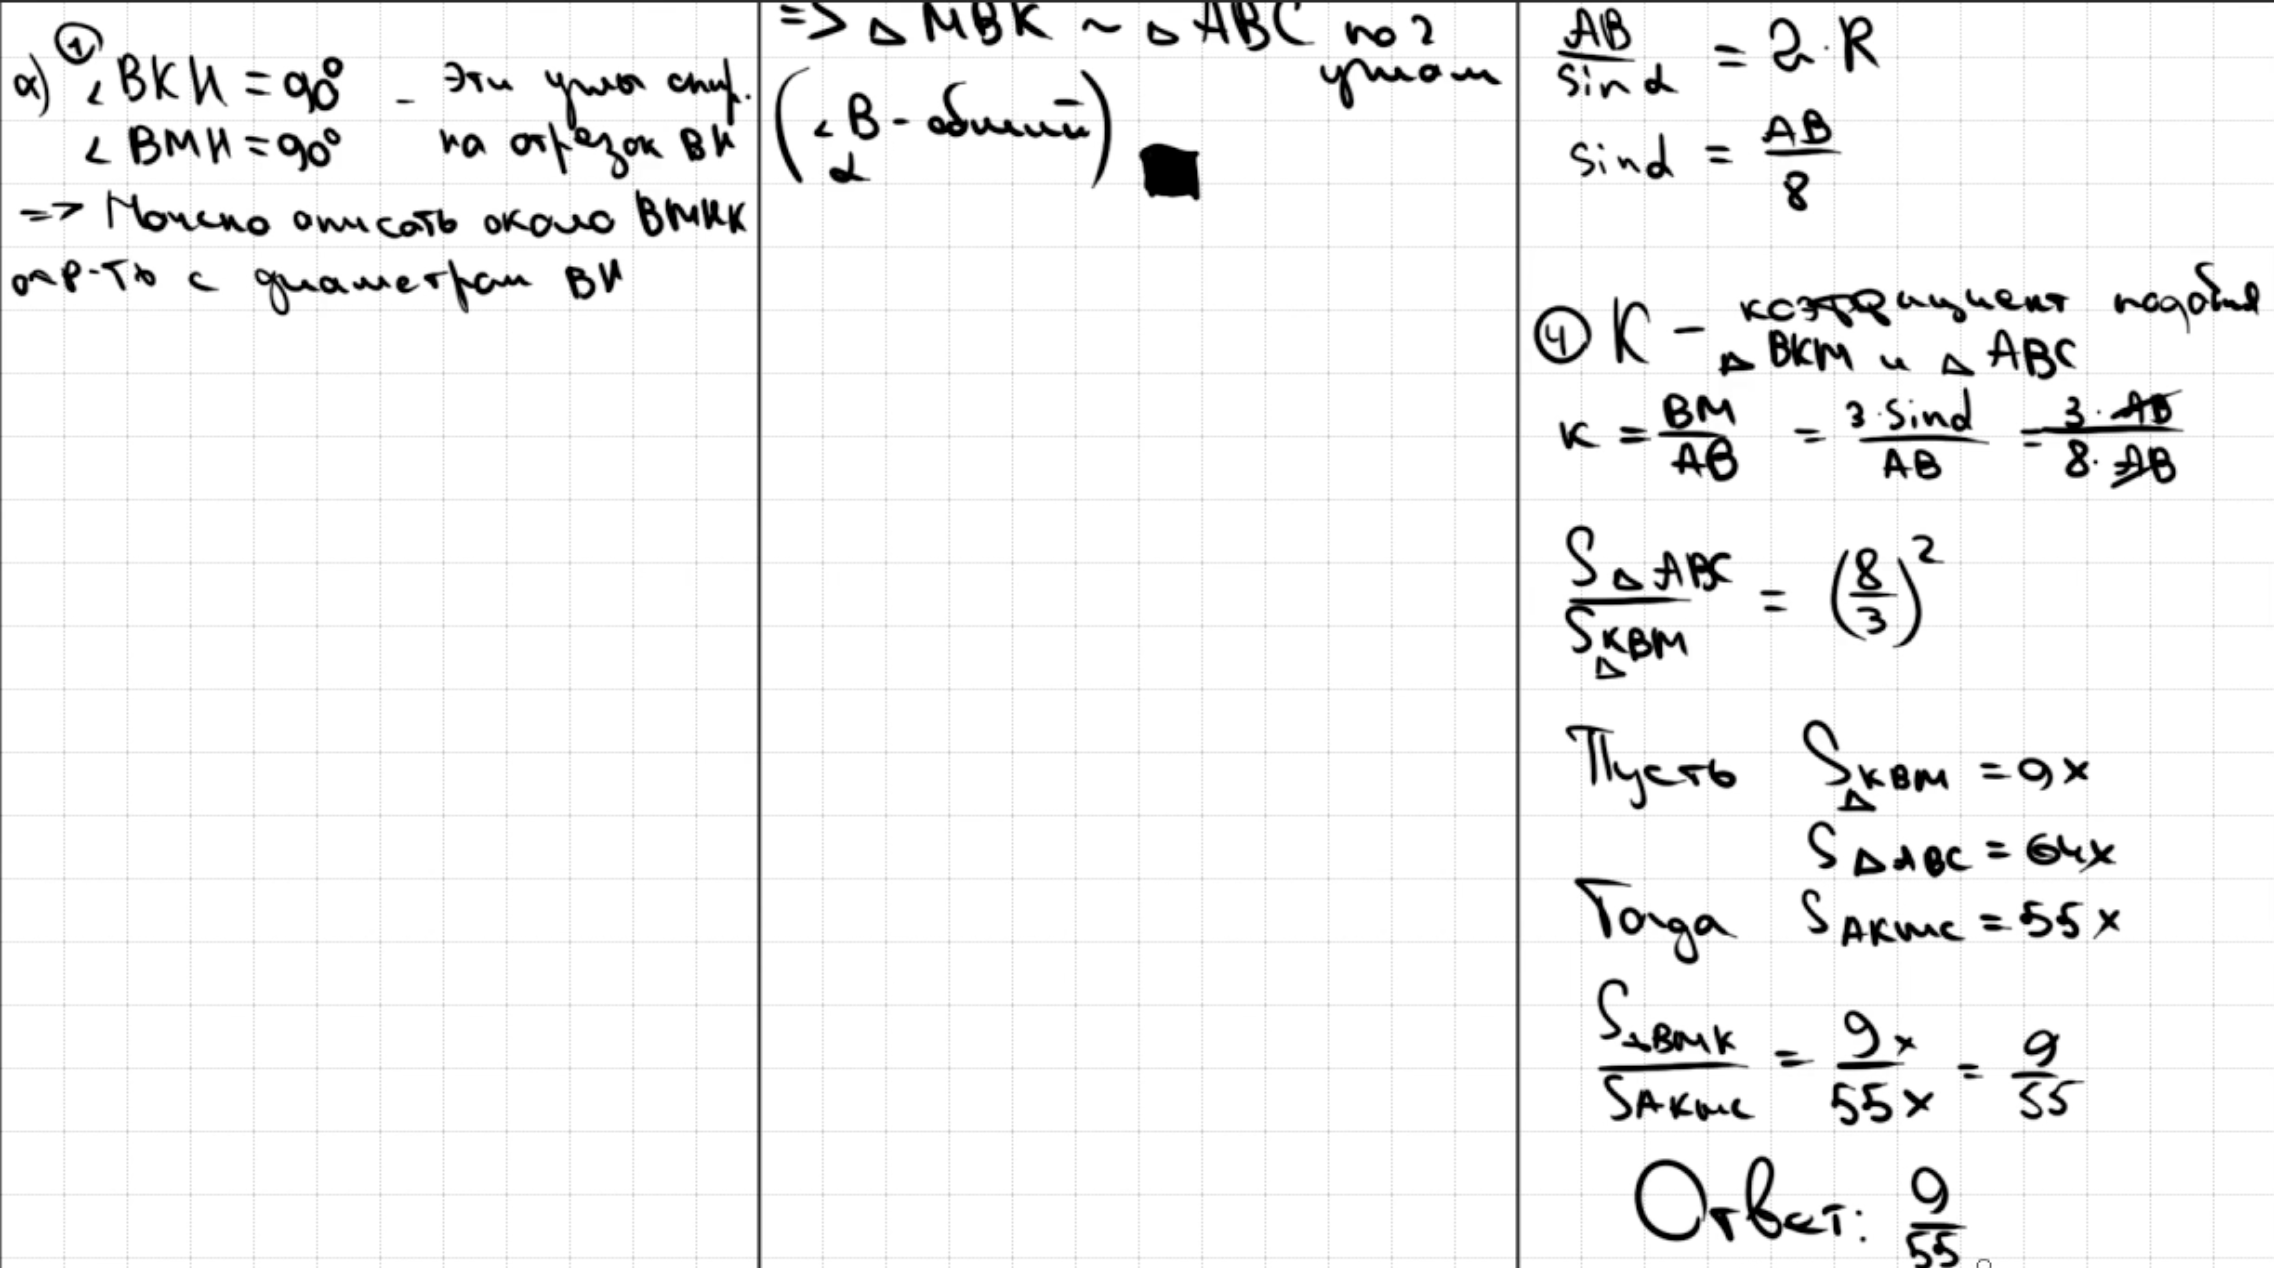 а) ① ∠BKH = 90° - Эти углы опир.
∠BMH = 90° на отрезок BH
=> Можно описать около BMHK
окр-ть с диаметром BH
=> △MBK ~ △ABC по 2 углам
(∠B - общий)
α
AB/sin α = 2·R
sin α = AB/8
④ K - коэффициент подобия
△BKM и △ABC
K = BM/AB = 3·sin α/AB = 3·AB/8·AB
S△ABC/S△KBM = (8/3)²
Пусть S△KBM = 9x
S△ABC = 64x
Тогда SAKMC = 55x
S△BMK/SAKMC = 9x/55x = 9/55
Ответ: 9/55.